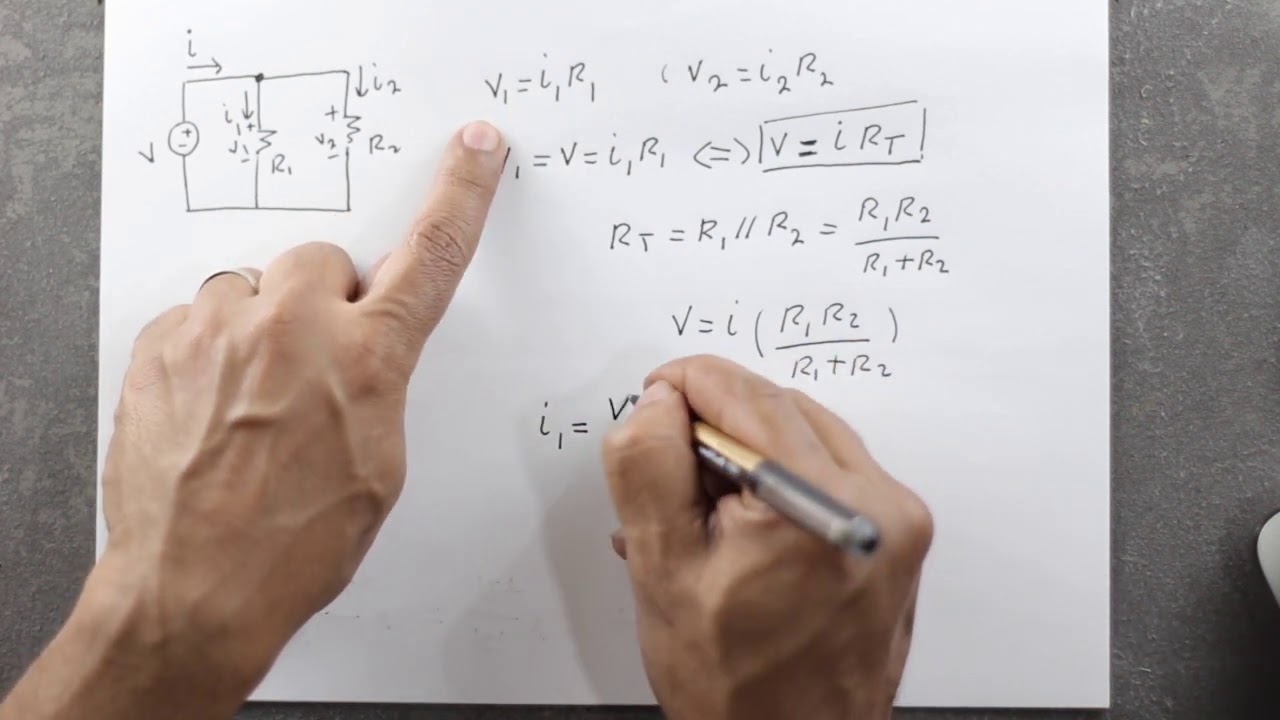 i
i₂
i₁
V
+
-
+ V₁ -
R₁
+ V₂ -
R₂
V₁ = i₁R₁ ( V₂ = i₂R₂
V₁ = V = i₁R₁ <=> V = i R_T
R_T = R₁ // R₂ = R₁R₂ / R₁+R₂
V = i ( R₁R₂ / R₁+R₂ )
i₁ = V